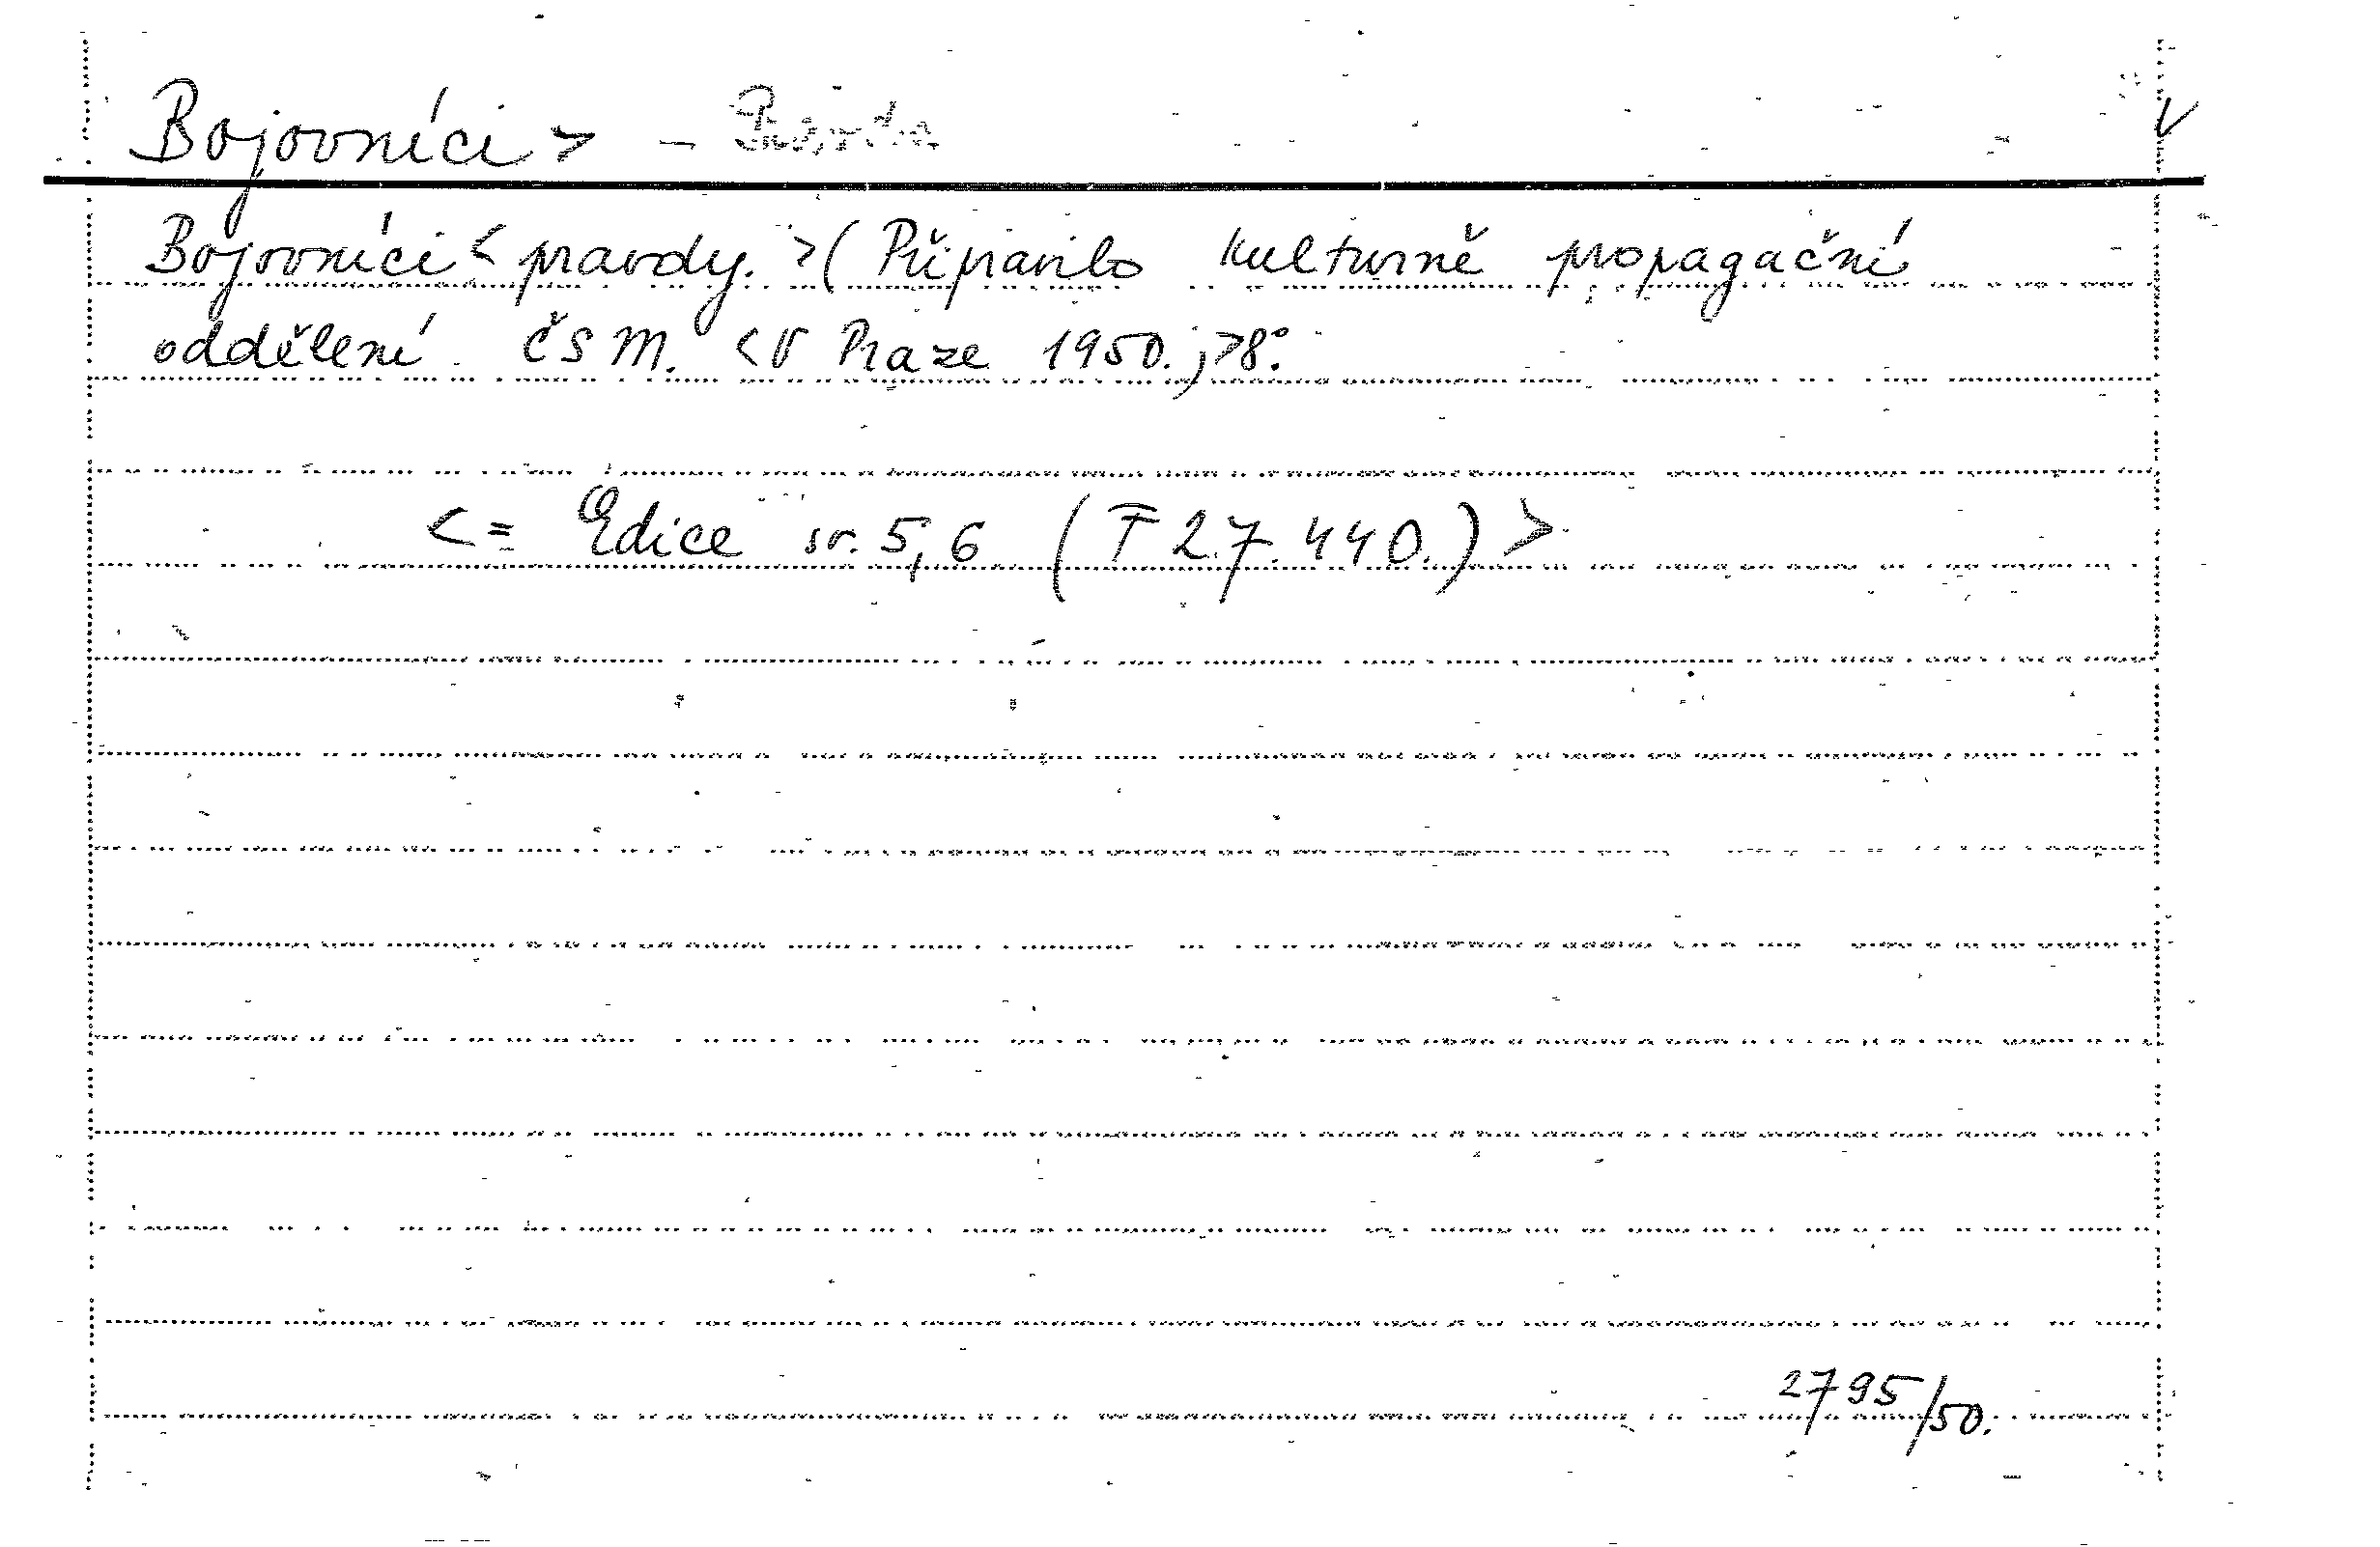 Bojovníci > -
V
Bojovníci < pravdy. > ( Připravilo kulturně propagační
oddělení ČSM. < V Praze 1950.; > 8°.
< = Edice sv. 5,6 ( T 27.440. ) >
2795/50.